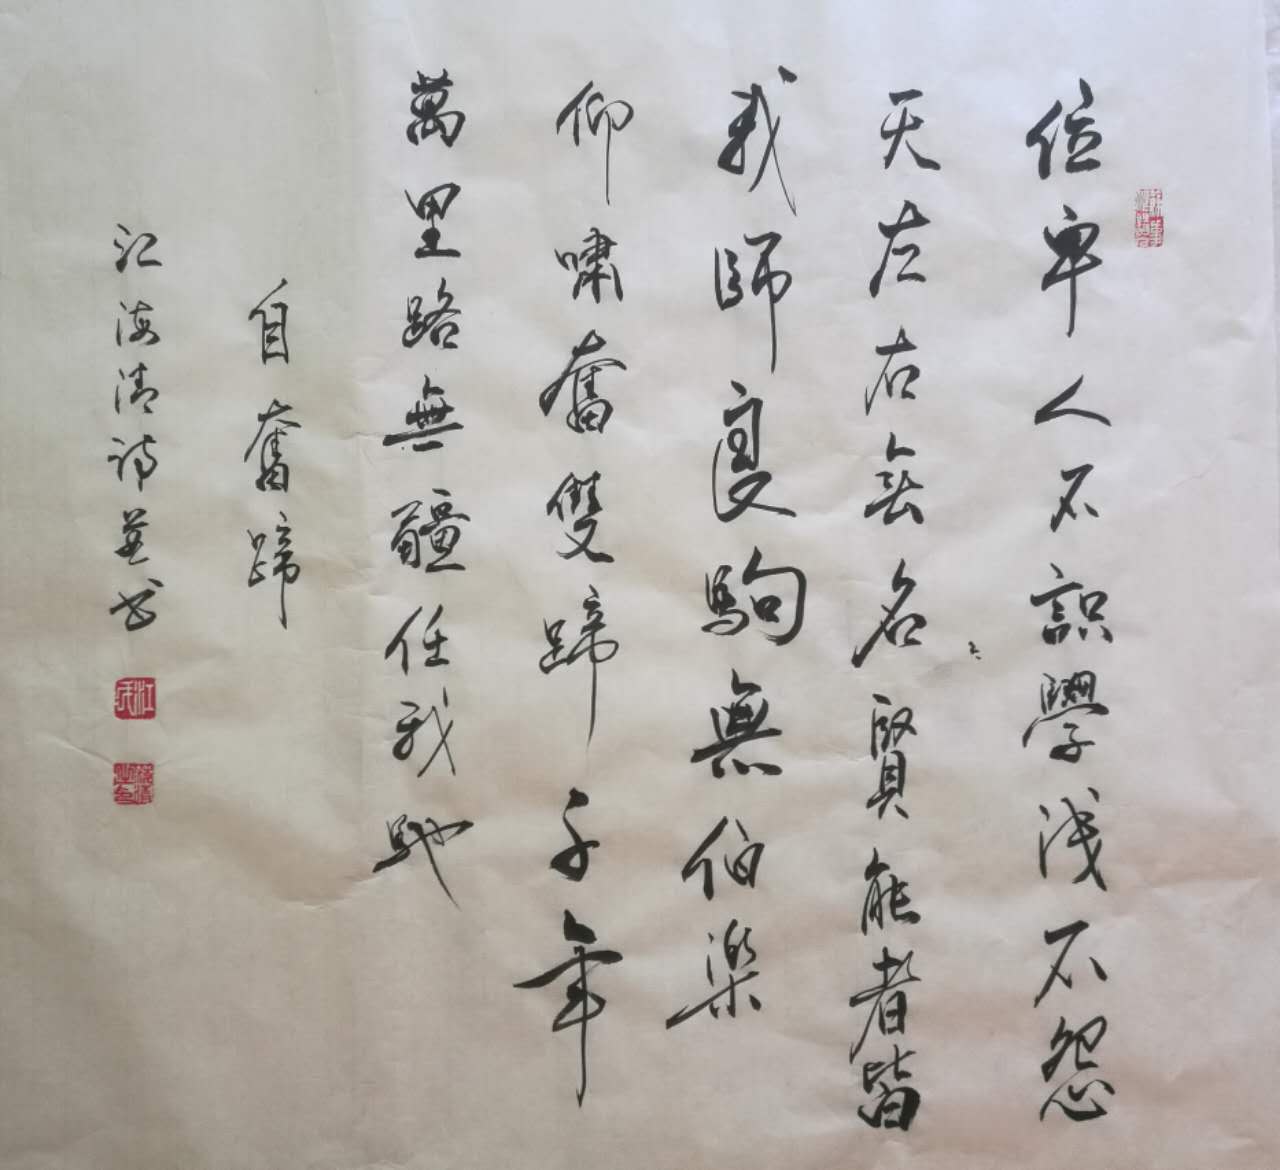 位卑人不識學淺不怨
天左右無名賢能者皆
我師良駒無伯樂
仰嘯奮雙蹄千年
萬里路無疆任我馳
自奮蹄
江海清詩並書
江氏